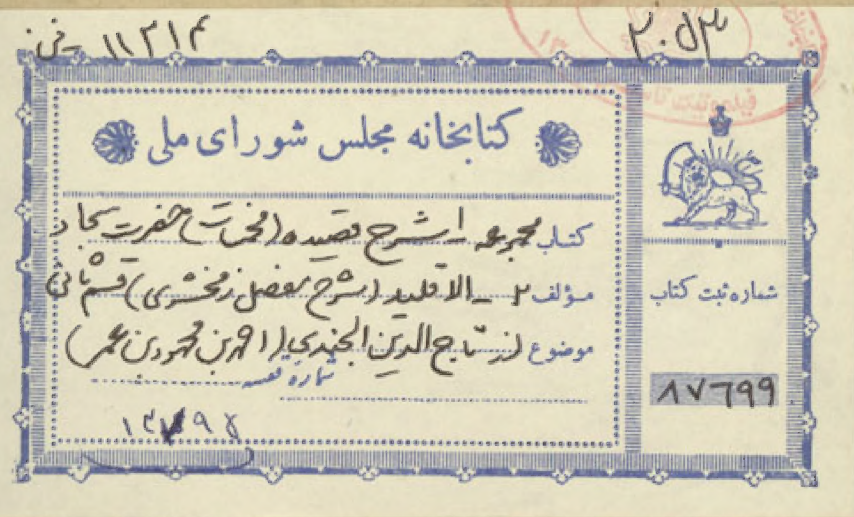 ۳۰۵۳
۱۱۳۱۴
کتابخانه مجلس شورای ملی
کتاب مجموعه ۱- شرح قصیده (مخمسات) حضرت سجاد
مؤلف ۲- الاقلید (شرح مفصل زمخشری) قسم ثانی
موضوع از تاج الدین الجندی (احمد بن محمود بن عمر)
شماره قفسه
۱۳۷۹۴
شماره ثبت کتاب
۸۷۶۹۹